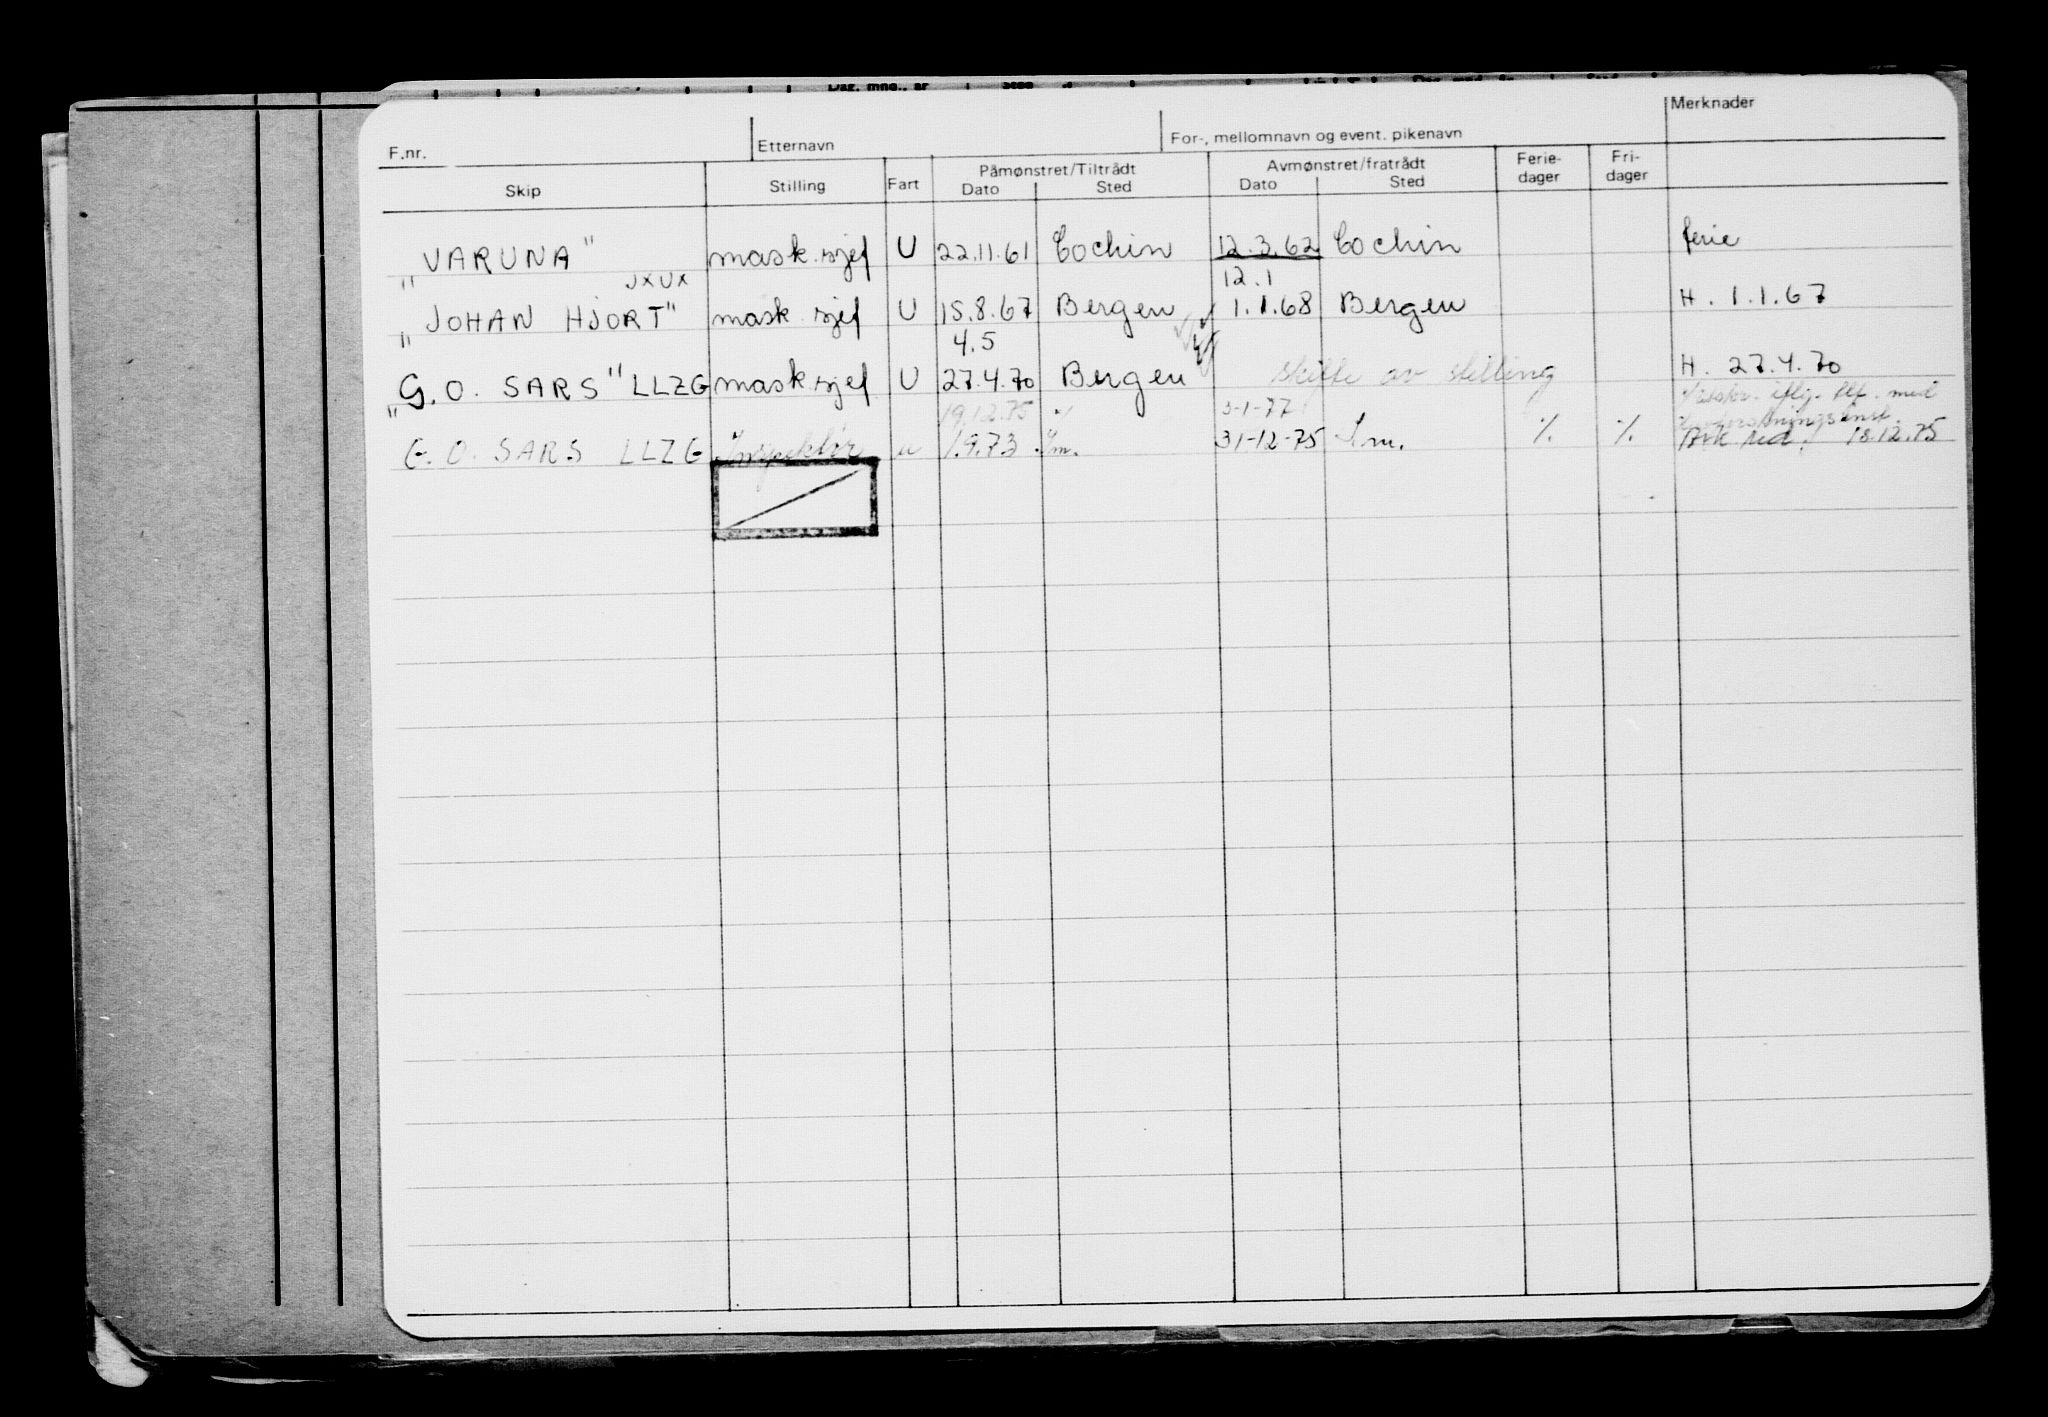 Merknader
F.nr. Etternavn For-, mellomnavn og event. pikenavn
Skip Stilling Fart Påmønstret/Tiltrådt Avmønstret/fratrådt Ferie- Fri-
Dato Sted Dato Sted dager dager
"VARUNA" mask.sjef U 22.11.61 Cochin 12.3.62 Cochin ferie
JXUX 12.1
"JOHAN HJORT" mask sjef U 15.8.67 Bergen 1.1.68 Bergen H. 1.1.67
4.5
"G.O. SARS" LLZG mask sjef U 27.4.70 Bergen skifte av stilling H. 27.4.70
19.12.75 3-1-77 tlf. med
G.O. SARS LLZG Inspektør u 1.9.73 31-12-75 % % 18.12.75